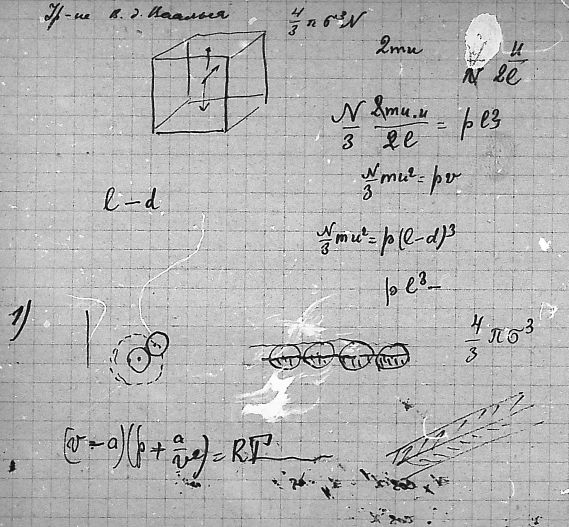 Ур-ие в. д. Ваальса
4/3 π σ³ N
2mu
N u/2l
N/3 2mu.u/2l = p l3
N/3 mu² = pv
l – d
N/3 mu² = p(l-d)³
p l³ –
1)
4/3 πσ³
(v – a)(p + a/v²) = RT